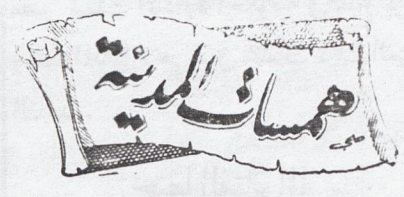 همسات المدينة